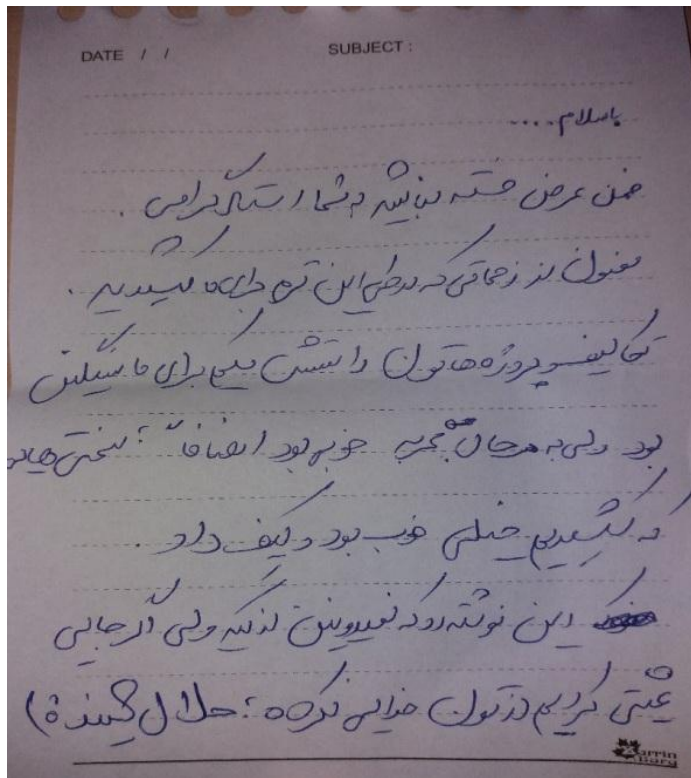 DATE / / SUBJECT :
باسلام....
ضمن عرض خسته نباشید به شما استاد گرامی .
ممنون از زحماتی که در طی این ترم برای ما کشیدید .
تکالیف و پروژه هاتون راستش یکم برای ما سنگین
بود ولی به هر حال تجربه خوبی بود انصافاً ؛ سختی هایی
که کشیدیم خیلی خوب بود و کیف داد .
این نوشته رو که نمیبینن دیگه ولی اگر جایی
غیبتی کردیم ازتون خدایی نکرده ؛ حلال کنید
Zarrin Barg